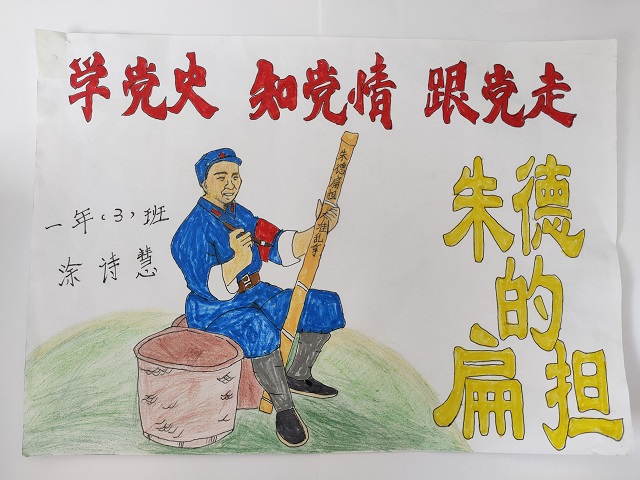 学党史 知党情 跟党走
朱德的扁担
一年(3)班
涂诗慧
朱德扁担
不准乱拿